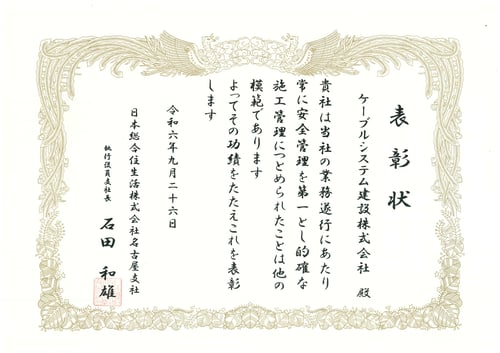 表彰状
ケーブルシステム建設株式会社 殿
貴社は当社の業務遂行にあたり
常に安全管理を第一とし的確な
施工管理につとめられたことは他の
模範であります
よってその功績をたたえこれを表彰
します
令和六年九月二十六日
日本総合住生活株式会社名古屋支社
執行役員支社長
石田 和雄